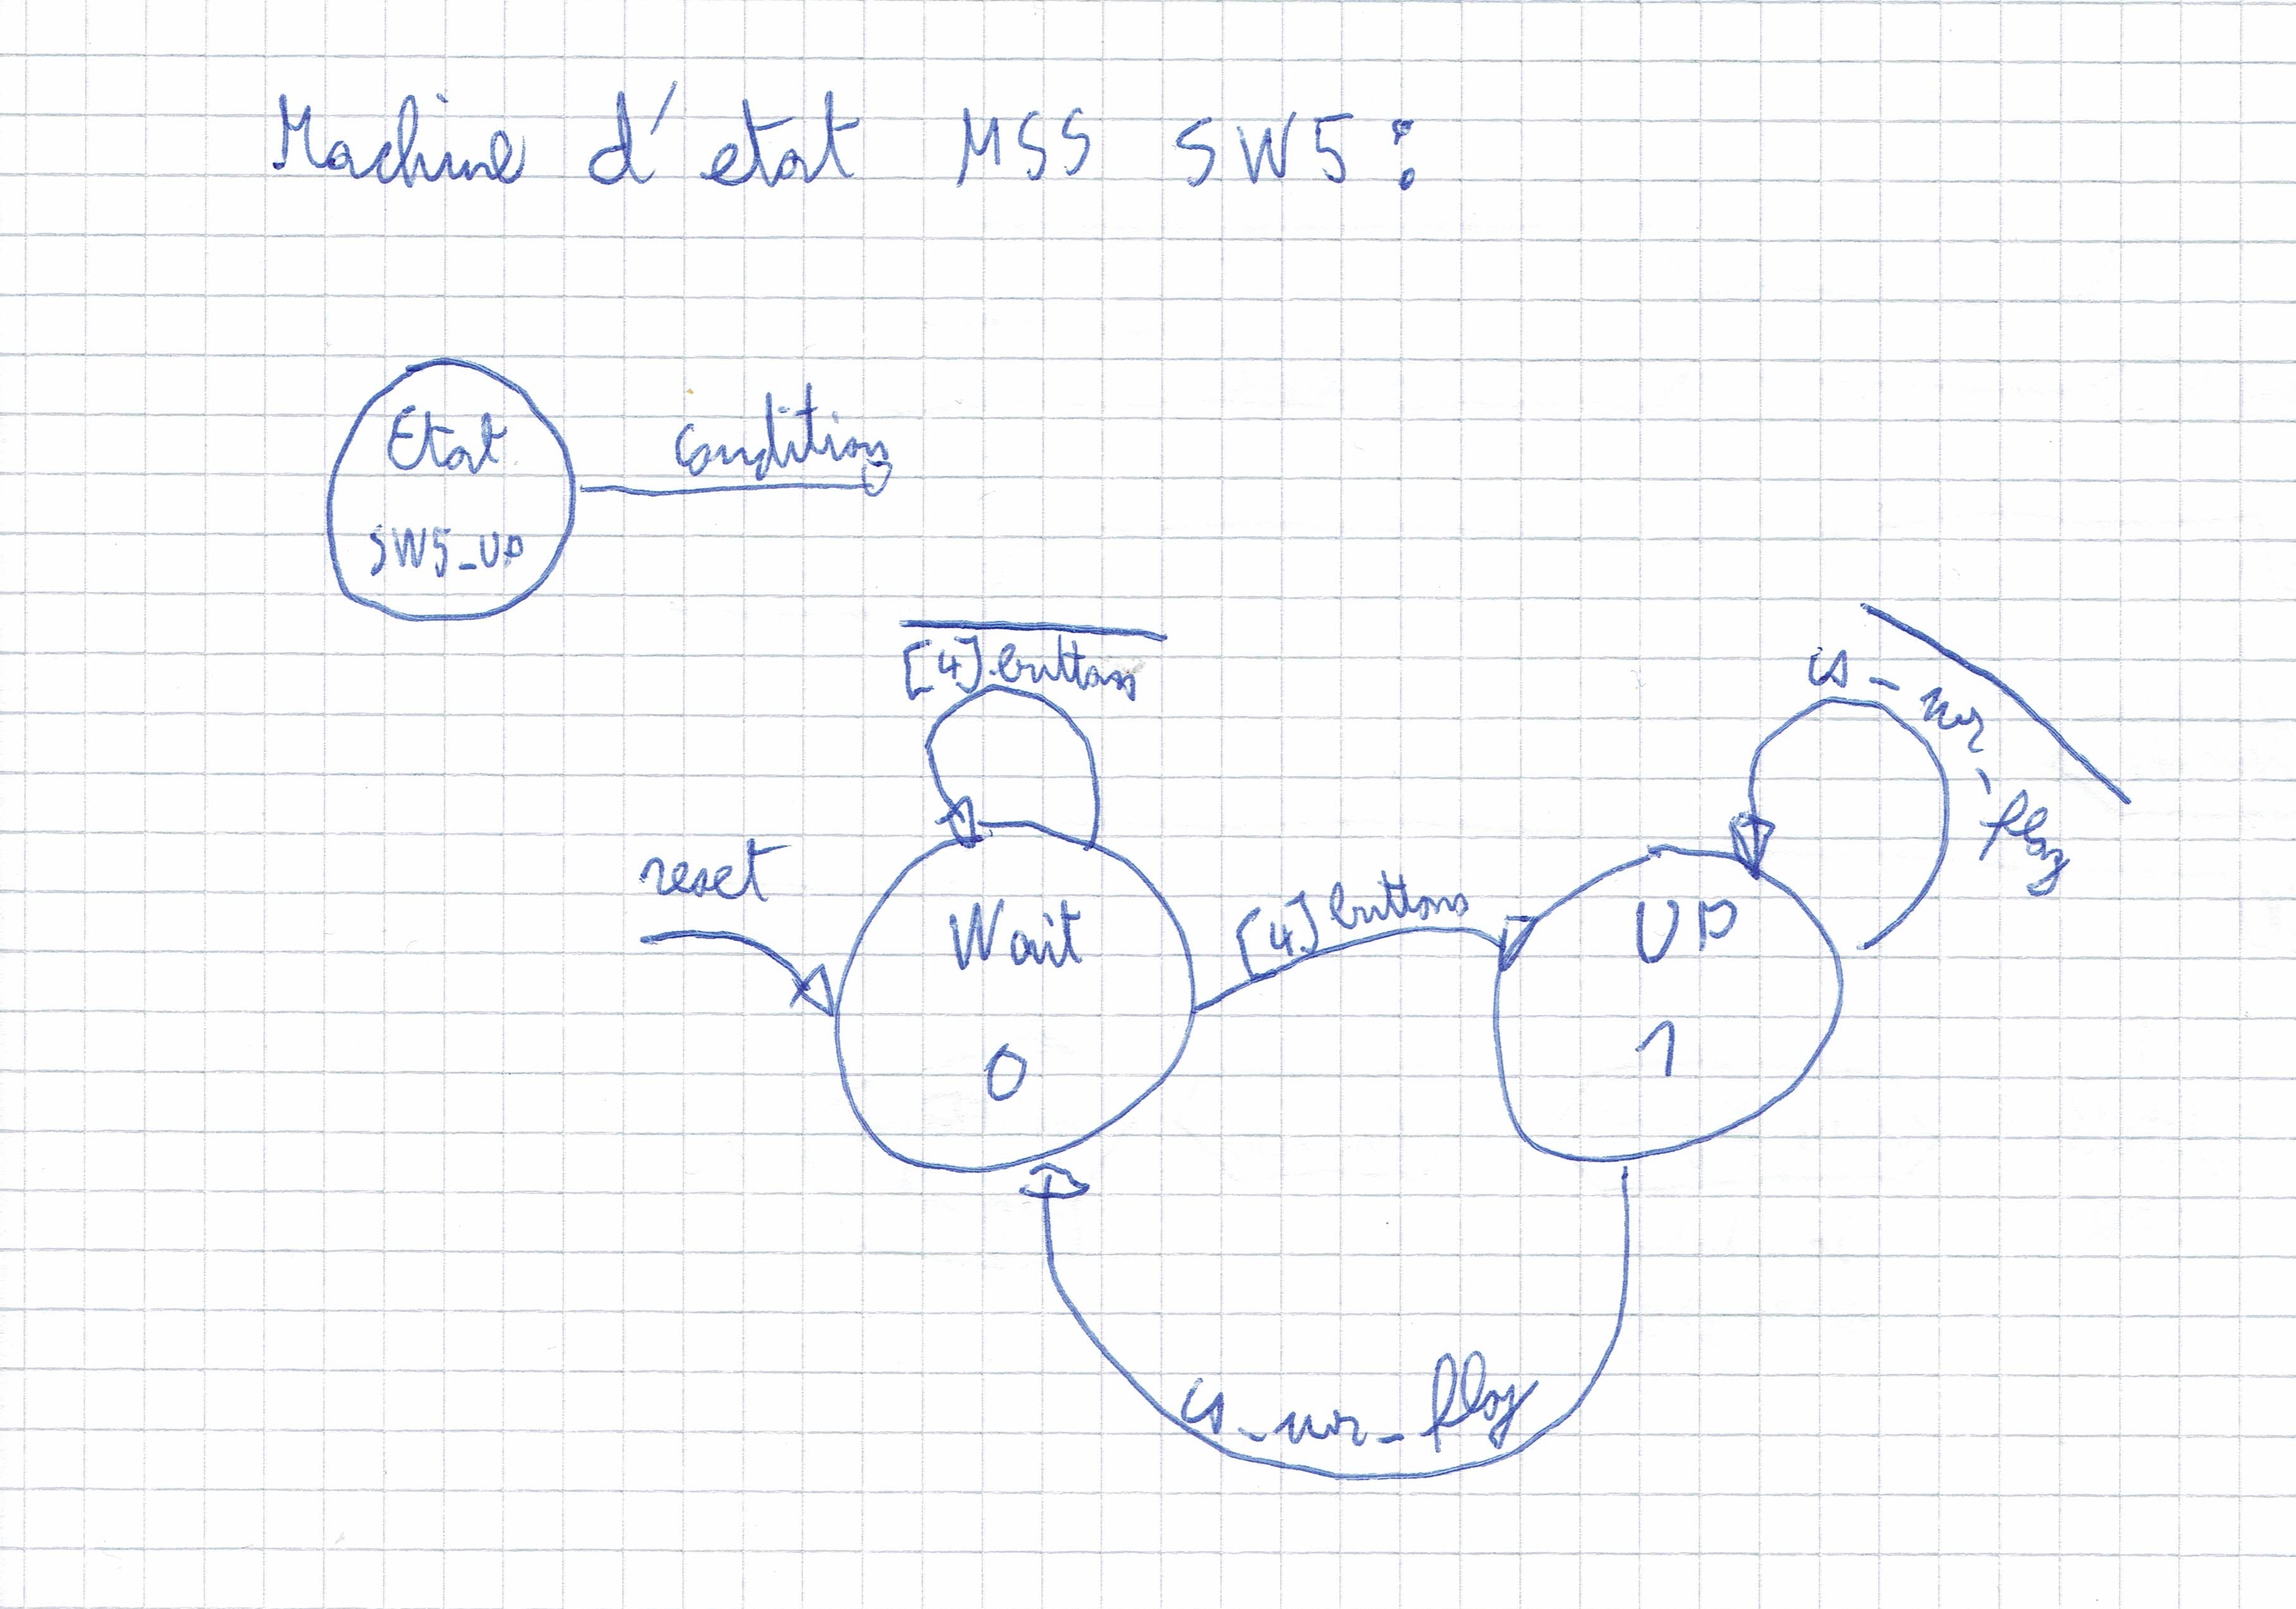 Machine d'etat MSS SW5:
Etat
SW5_UP
Condition
[4] buttons
cs_wr_flag
reset
Wait
0
[4] buttons
UP
1
cs_wr_flag